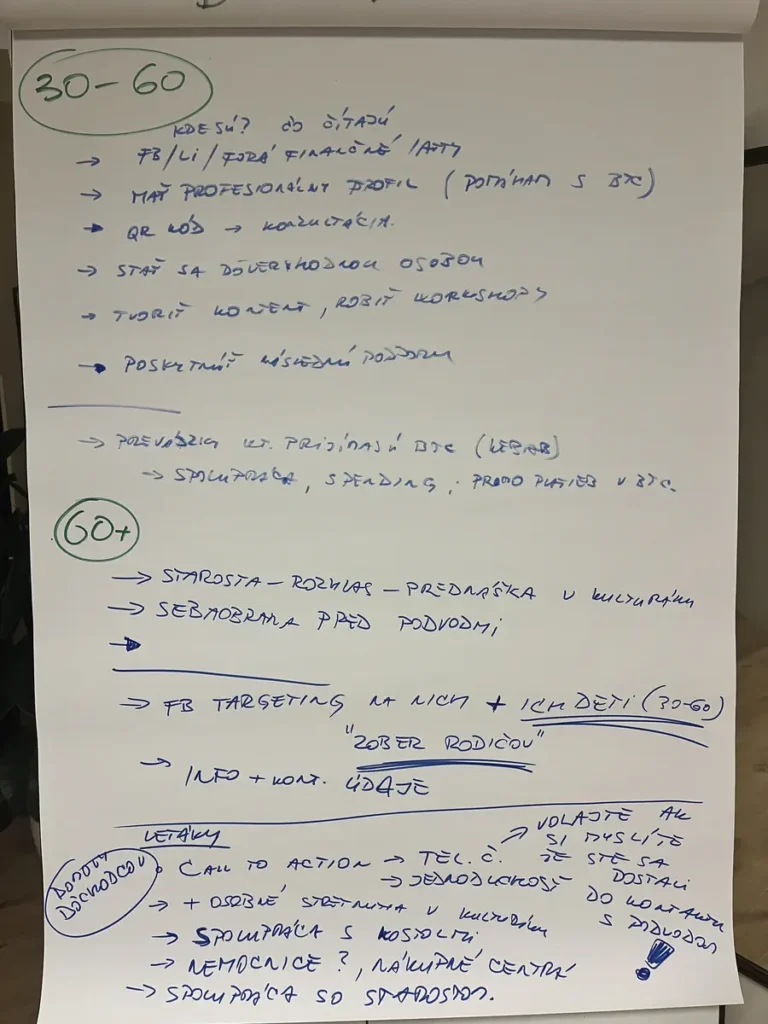 30-60
KDE SÚ? ČO ČÍTAJÚ
→ FB/LI/FÓRÁ FINANČNÉ
→ MAŤ PROFESIONÁLNY PROFIL (POMÁHAM S BTC)
→ QR KÓD → KONZULTÁCIA.
→ STAŤ SA DÔVERYHODNOU OSOBOU
→ TVORIŤ KONTENT, ROBIŤ WORKSHOPY
→ POSKYTNÚŤ NÁSLEDNÚ PODPORU
→ PREVÁDZKY KT. PRIJÍMAJÚ BTC (KEBAB)
→ SPOLUPRÁCA, SPENDING, PROMO PLATIEB V BTC.
60+
→ STAROSTA - ROZHLAS - PREDNÁŠKA V KULTURÁKU
→ SEBAOBRANA PRED PODVODMI
→
→ FB TARGETING NA NICH + ICH DETI (30-60)
"ZOBER RODIČOV"
→ INFO + KONT. ÚDAJE
LETÁKY
DOMOVY DÔCHODCOV
• CALL TO ACTION → TEL.Č. → VOLAJTE AK SI MYSLÍTE ŽE STE SA DOSTALI DO KONTAKTU S PODVODOM !
→ JEDNODUCHOSŤ
→ + OSOBNÉ STRETNUTIA V KULTURÁKU
→ SPOLUPRÁCA S KOSTOLMI
→ NEMOCNICE?, NÁKUPNÉ CENTRÁ
→ SPOLUPRÁCA SO STAROSTOM.